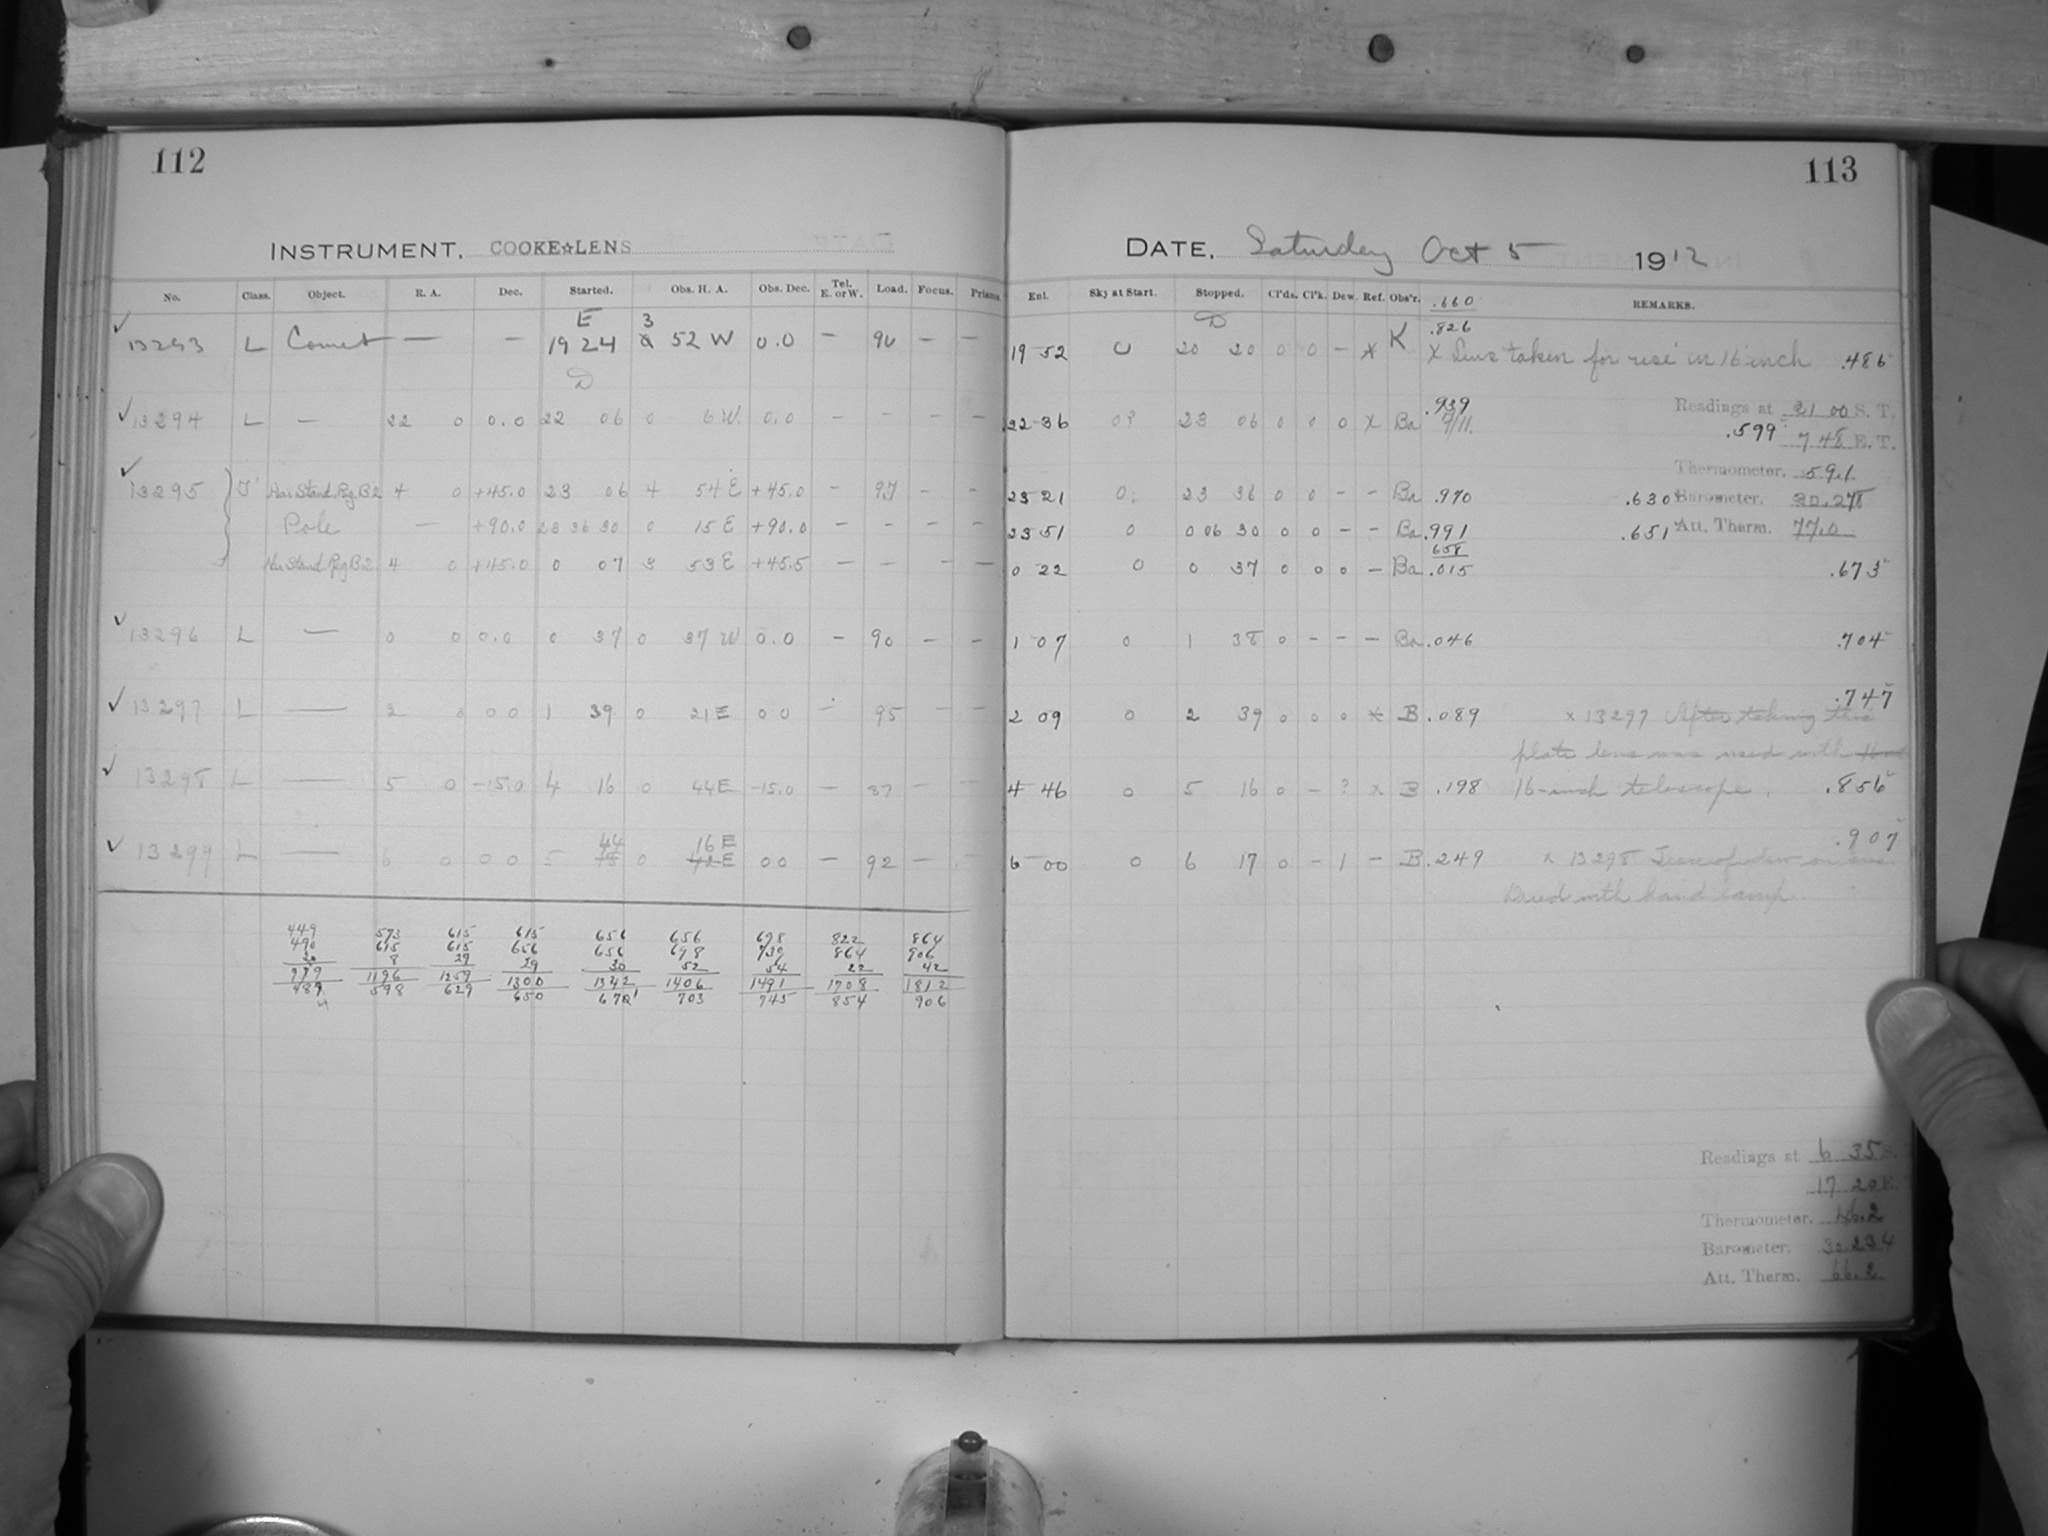 112
INSTRUMENT. COOKE☆LENS
No. Class. Object. R. A. Dec. Started. Obs. H. A. Obs. Dec. Tel. E. or W. Load. Focus. Prisms.
E 3
✓ 13293 L Comet — — 19 24 52 W 0.0 — 90 — —
D
✓ 13294 L — 22 0 0.0 22 06 0 6 W. 0.0 — — — —
✓ 13295 Har Stand Reg B2 4 0 +45.0 23 06 4 54 E +45.0 — 97 — —
Pole — +90.0 23 36 30 0 15 E +90.0 — — — —
Har Stand Reg B2 4 0 +45.0 0 07 3 53 E +45.5 — — — —
✓ 13296 L — 0 0 0.0 0 37 0 37 W 0.0 — 90 — —
✓ 13297 L — 2 0 0 0 1 39 0 21 E 0 0 — 95 — —
✓ 13298 L — 5 0 -15.0 4 16 0 44 E -15.0 — 37 — —
44 16 E
✓ 13299 L — 6 0 0 0 5 18 0 42 E 0 0 — 92 — —
449 573 615 615 656 656 698 822 864
490 615 615 656 656 698 739 864 906
8 29 29 30 52 54 22 42
979 1196 1259 1300 1342 1406 1491 1708 1812
489 598 629 650 670 703 745 854 906
113
DATE. Saturday Oct 5 1912
Enl. Sky at Start. Stopped. Cl'ds. Cl'k. Dew. Ref. Obs'r. .660 REMARKS.
D .826
19 52 0 20 20 0 0 — x K x Lens taken for use in 16 inch .486
.939 Readings at 21 00 S. T.
22 36 0? 23 06 0 0 0 x Ba 7/11. .599 7 48 E. T.
Thermometer. 59.1
23 21 0 23 36 0 0 — — Ba .970 .630 Barometer. 30.278
23 51 0 0 06 30 0 0 — — Ba .991 .651 Att. Therm. 77.0
658
0 22 0 0 37 0 0 0 — Ba .015 .673
1 07 0 1 38 0 — — — Ba .046 .704
.747
2 09 0 2 39 0 0 0 x B .089 x 13297 After taking this
plate lens was used with
4 46 0 5 16 0 — ? x B .198 16-inch telescope. .856
.907
6 00 0 6 17 0 — 1 — B .249 x 13298 of dew on lens
Dried with hand lamp
Readings at 6 35 S.
17 20 E.
Thermometer. 46.2
Barometer. 30.234
Att. Therm. 66.2